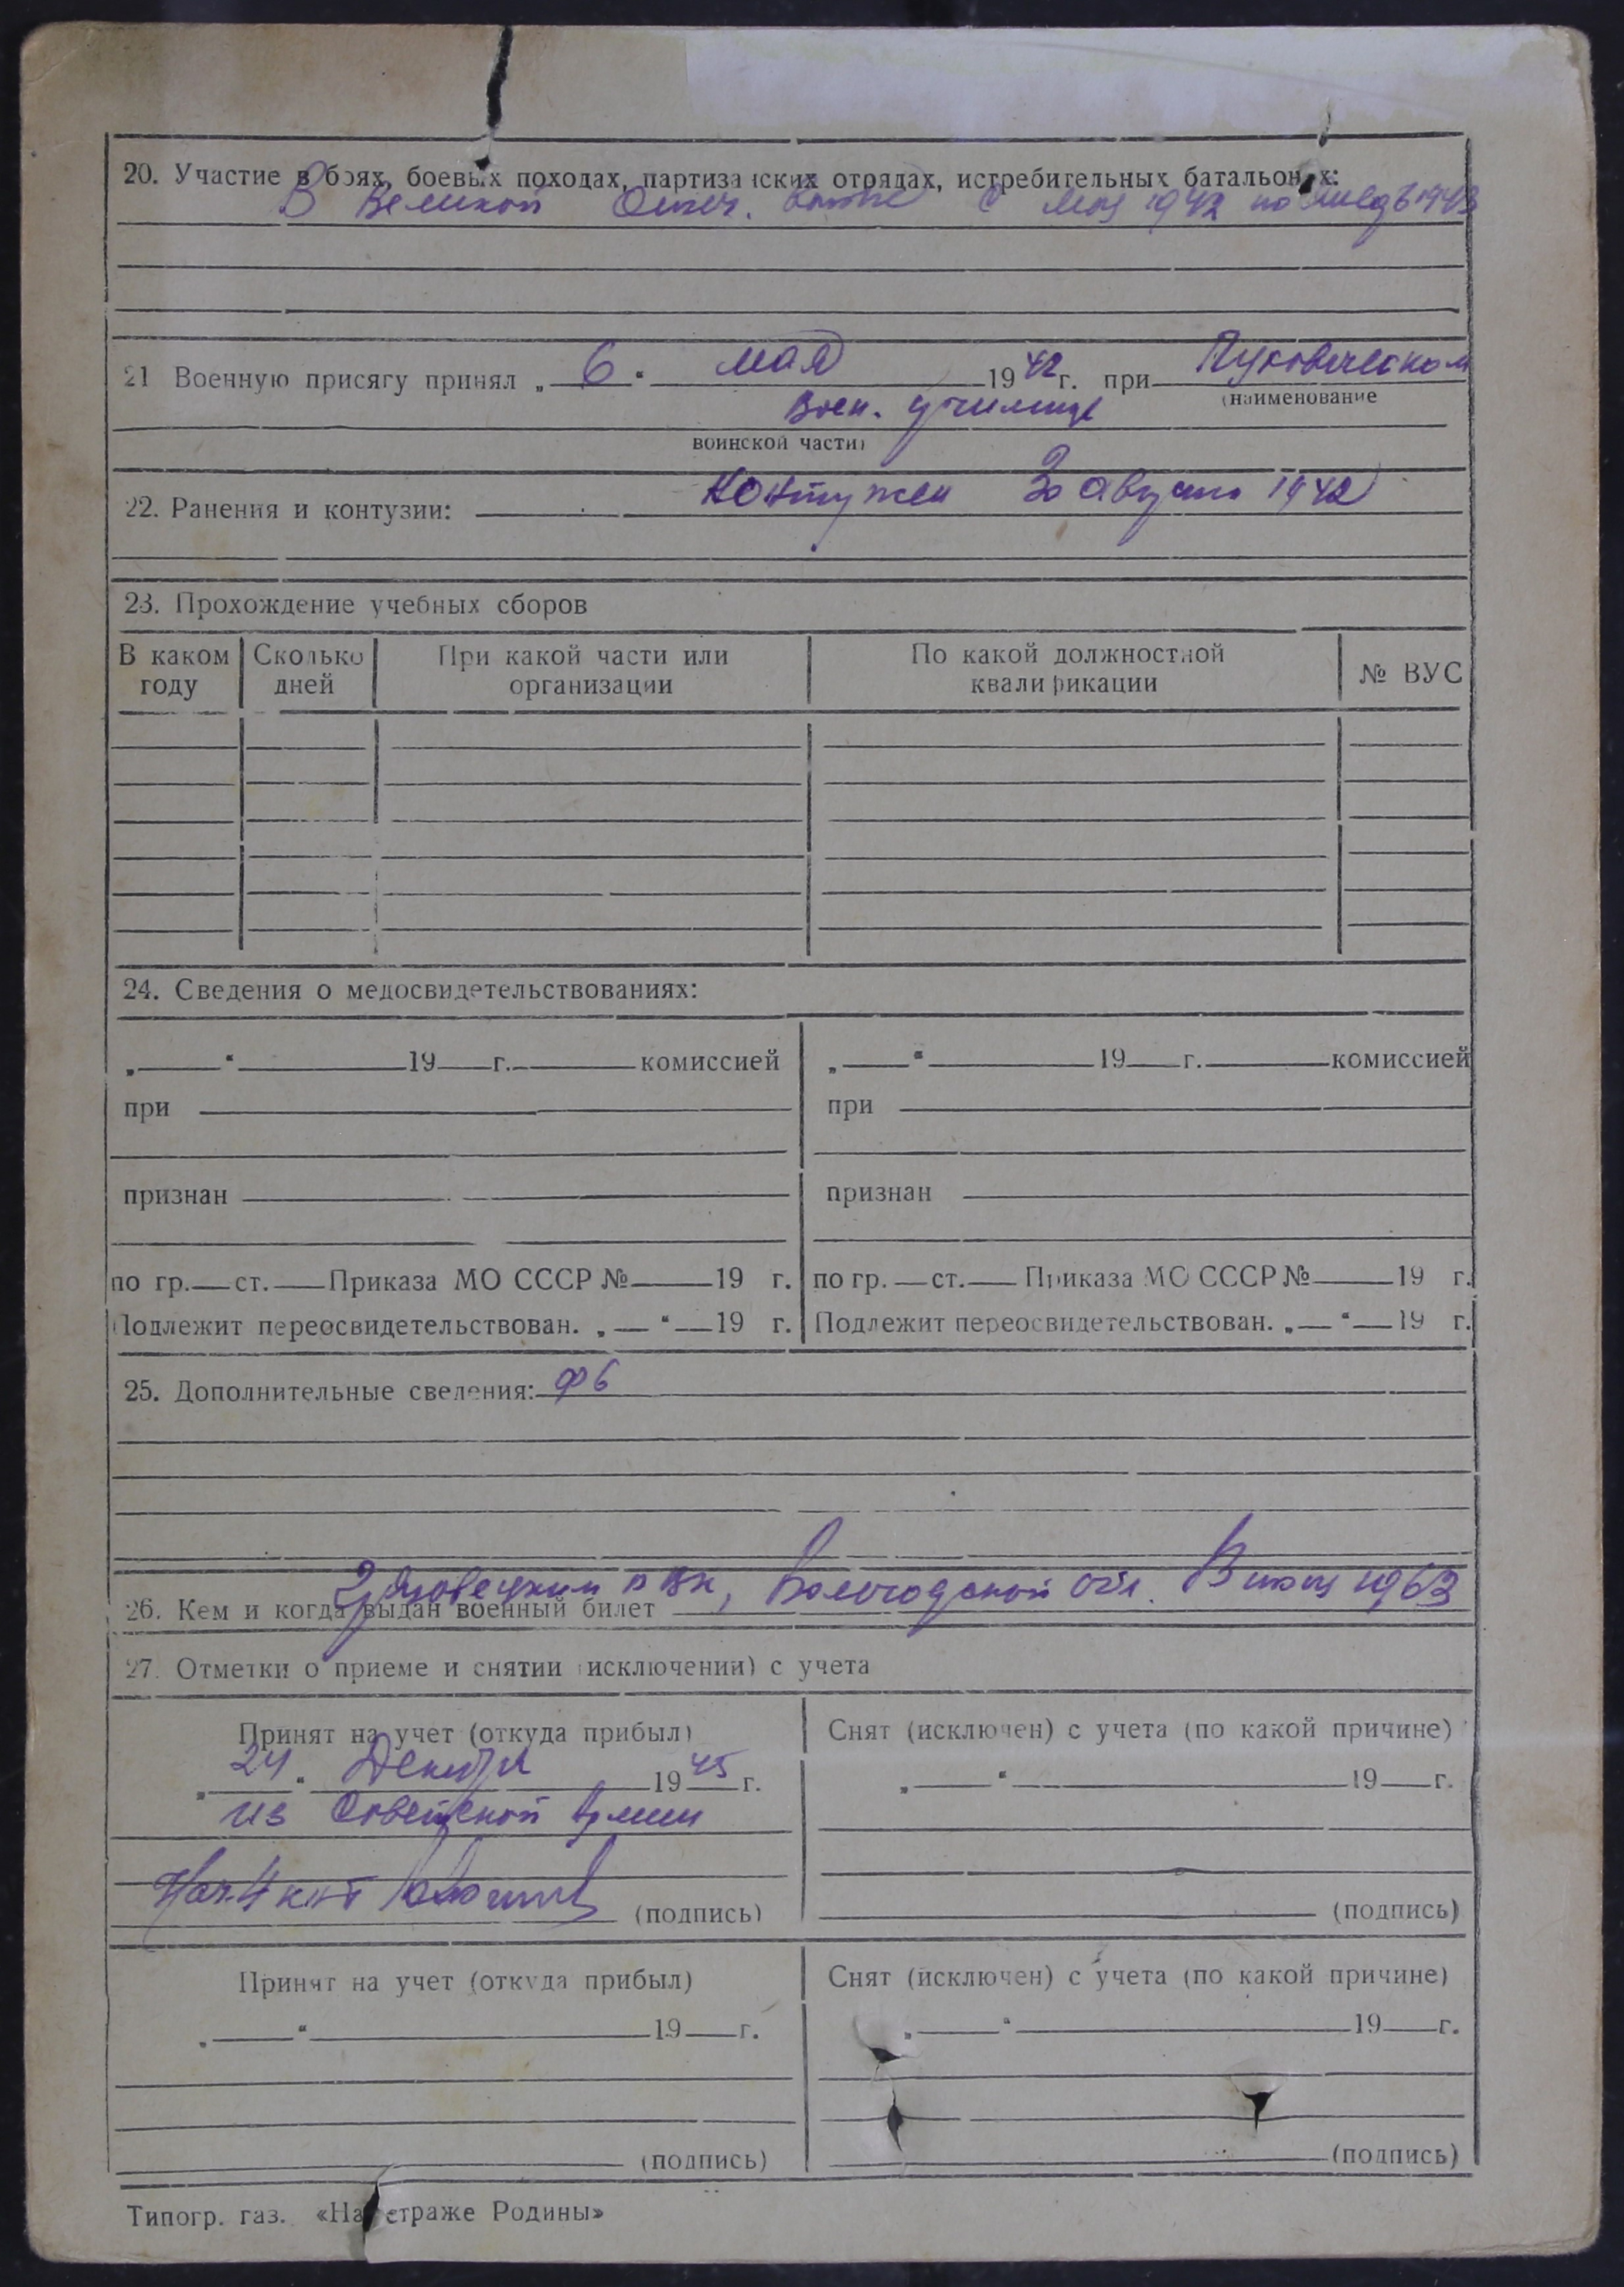 20. Участие в боях, боевых походах, партизанских отрядах, истребительных батальонах:
В Великой Отеч. войне с мая 1942 по 1943
21 Военную присягу принял „ 6 “ мая 1942 г. при Пуховическом
(наименование
Воен. училище
воинской части)
22. Ранения и контузии: Контужен 30 августа 1942
23. Прохождение учебных сборов
В каком году Сколько дней При какой части или организации По какой должностной квалификации № ВУС
24. Сведения о медосвидетельствованиях:
„ “ 19 г. комиссией „ “ 19 г. комиссией
при при
признан признан
по гр. ст. Приказа МО СССР № 19 г. по гр. ст. Приказа МО СССР № 19 г.
Подлежит переосвидетельствован. „ “ 19 г. Подлежит переосвидетельствован. „ “ 19 г.
25. Дополнительные сведения: ф6
26. Кем и когда выдан военный билет Грязовецким РВК, Вологодской обл. 1963
27. Отметки о приеме и снятии (исключении) с учета
Принят на учет (откуда прибыл) Снят (исключен) с учета (по какой причине)
„ 24 “ Декабря 1945 г. „ “ 19 г.
из Советской Армии
Нач. 4
(подпись) (подпись)
Принят на учет (откуда прибыл) Снят (исключен) с учета (по какой причине)
„ “ 19 г. „ “ 19 г.
(подпись) (подпись)
Типогр. газ. «На страже Родины»